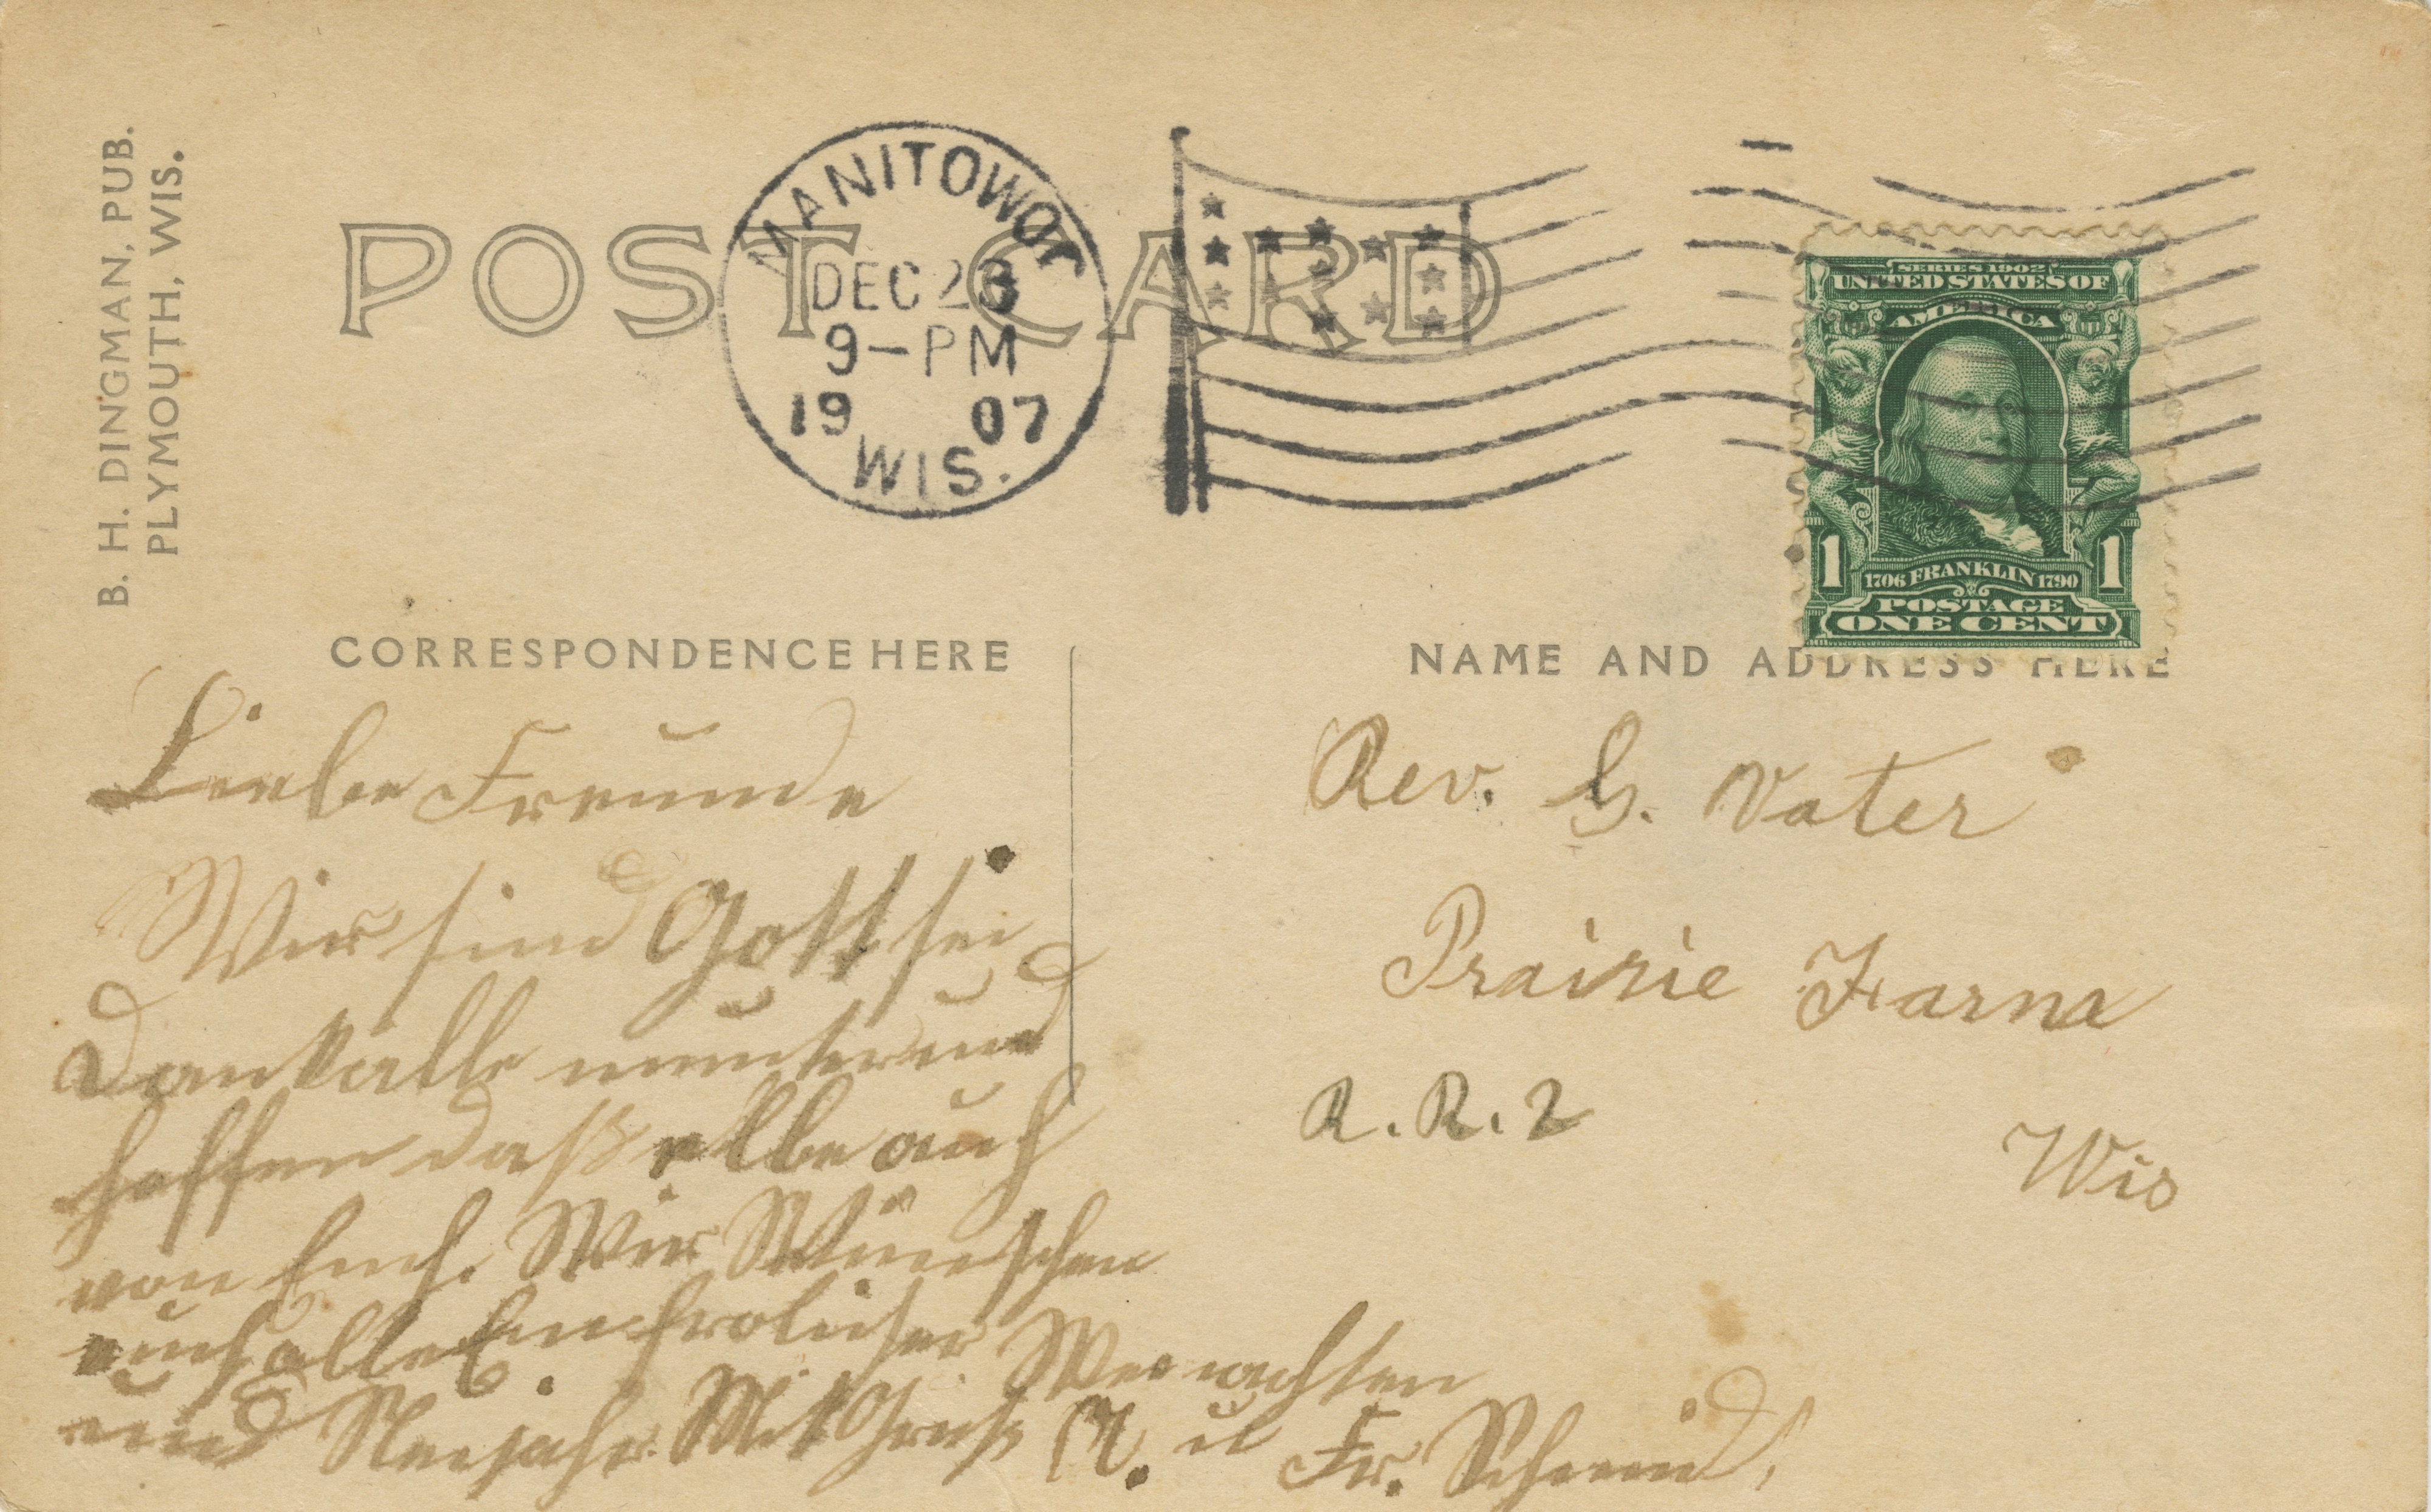 B. H. DINGMAN, PUB.
PLYMOUTH, WIS.
POST CARD
MANITOWOC
DEC 23
9-PM
19 07
WIS.
SERIES 1902
UNITED STATES OF
AMERICA
1 1
1706 FRANKLIN 1790
POSTAGE
ONE CENT
CORRESPONDENCE HERE
NAME AND ADDRESS HERE
Liebe Freunde
Wir sind Gott sei
Dank alle munter und
hoffen daß elbe auch
von Euch. Wir Wünschen
euch alle Ein frolicher Weinachten
und Neujahr. Mit Gruß M. u Fr. Schmid
Rev. G. Vater
Prairie Farm
R.R.2
Wis